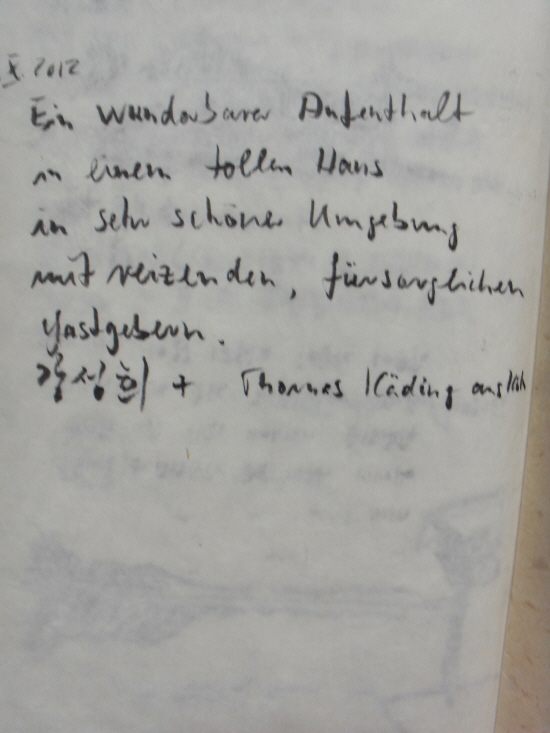 X. 2012
Ein wunderbarer Aufenthalt
in einem tollen Haus
in sehr schöner Umgebung
mit reizenden, fürsorglichen
Gastgebern.
강성희 + Thomas Käding aus Köln